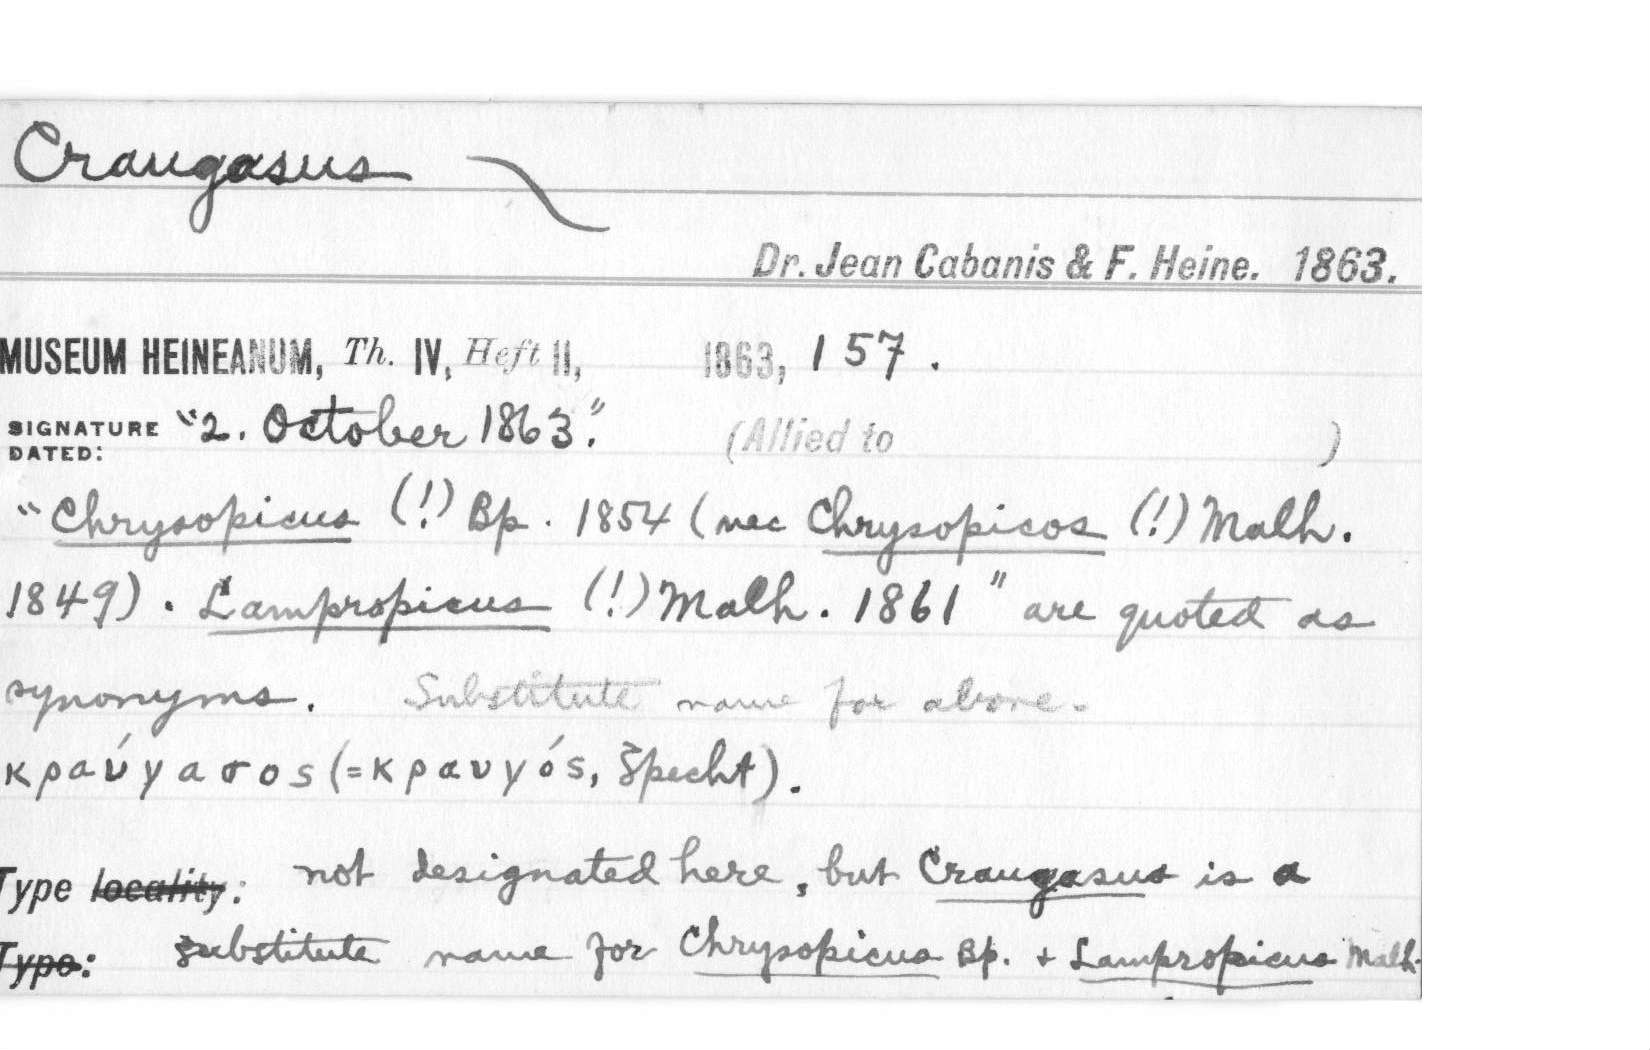 Craugasus
Dr. Jean Cabanis & F. Heine. 1863.
MUSEUM HEINEANUM, Th. IV, Heft II, 1863, 157.
SIGNATURE DATED: "2. October 1863." (Allied to )
"Chrysopicus (!) Bp. 1854 (nec Chrysopicos (!) Malh.
1849). Lampropicus (!) Malh. 1861" are quoted as
synonyms. Substitute name for above.
κραύγασος (=κραυγός, Specht).
Type locality: not designated here, but Craugasus is a
Type: substitute name for Chrysopicus Bp. + Lampropicus Malh.